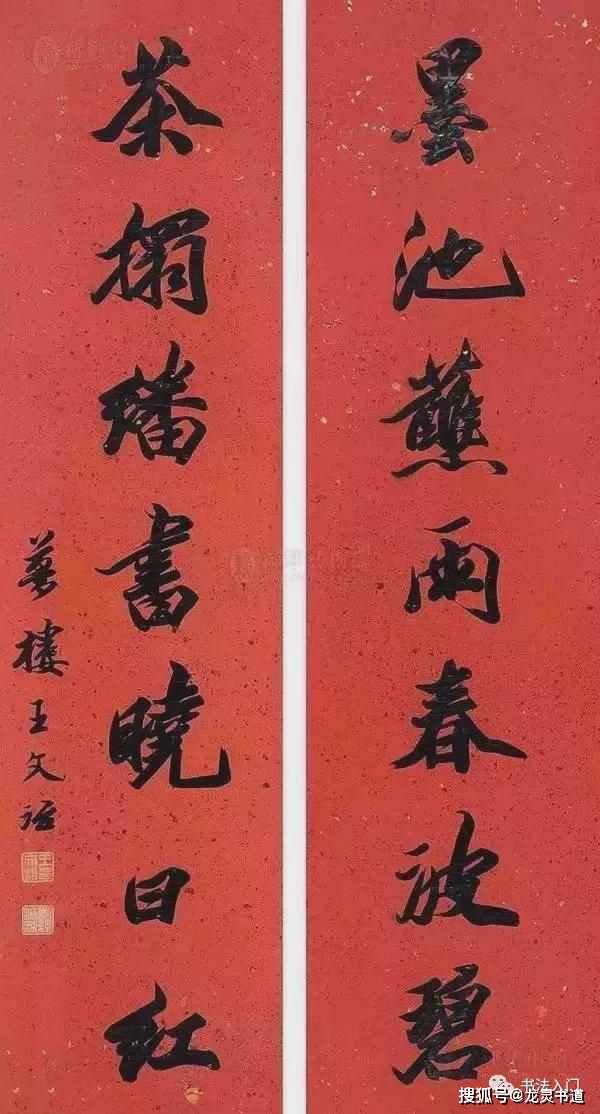 墨池蘸雨春波碧
茶搨繙書曉日紅
夢樓王文治
书法入门
搜狐号@龙灵书道